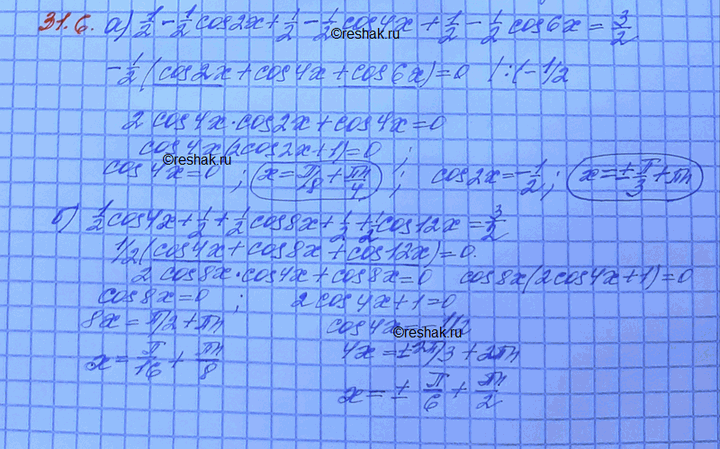 31.6. а) 1/2 - 1/2 cos2x + 1/2 - 1/2 cos4x + 1/2 - 1/2 cos6x = 3/2
©reshak.ru
-1/2 (cos2x + cos4x + cos6x) = 0 | :(-1/2
2 cos4x·cos2x + cos4x = 0
cos4x(2cos2x+1) = 0 ;
©reshak.ru
cos4x = 0 ; x = π/8 + πn/4 ; cos2x = -1/2 ; x = ± π/3 + πn
б) 1/2 cos4x + 1/2 + 1/2 cos8x + 1/2 + 1/2 cos12x = 3/2
1/2 (cos4x + cos8x + cos12x) = 0.
2 cos8x·cos4x + cos8x = 0 cos8x(2cos4x+1) = 0
cos8x = 0 ; 2 cos4x + 1 = 0
8x = π/2 + πn cos4x = -1/2
©reshak.ru
4x = ±2π/3 + 2πn
x = π/16 + πn/8
x = ± π/6 + πn/2